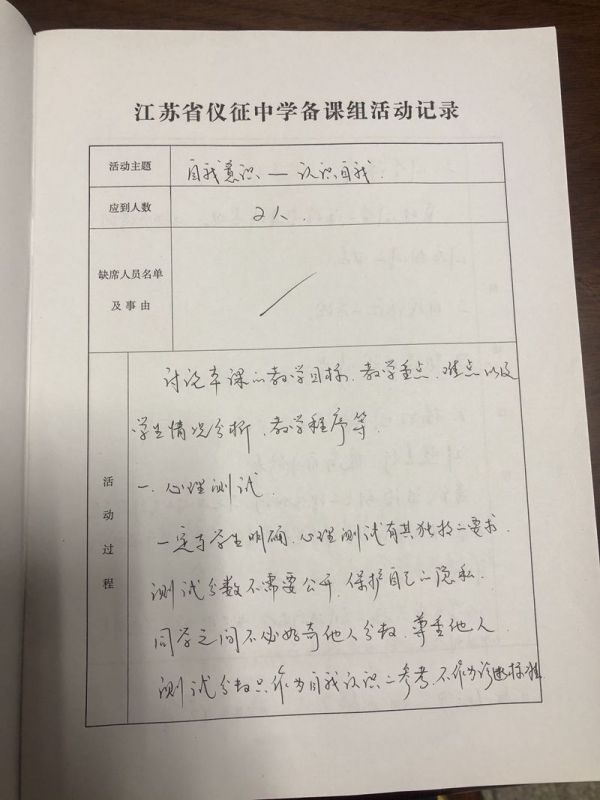 江苏省仪征中学备课组活动记录
活动主题 自我意识—认识自我.
应到人数 2人.
缺席人员名单
及事由
活动过程
讨论本课的教学目标、教学重点、难点以及
学生情况分析、教学程序等.
一. 心理测试.
一定与学生明确, 心理测试有其独特的要求.
测试分数不需要公开, 保护自己的隐私.
同学之间不必好奇他人分数, 尊重他人.
测试分数只作为自我认识的参考, 不作为诊断标准.